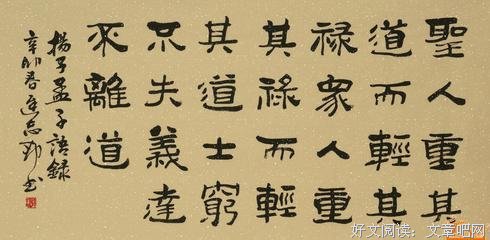 聖人重其
道而輕其
祿眾人重
其祿而輕
其道士窮
不失義達
不離道
揚子孟子語録
辛卯春 书
好文阅读：文章吧网